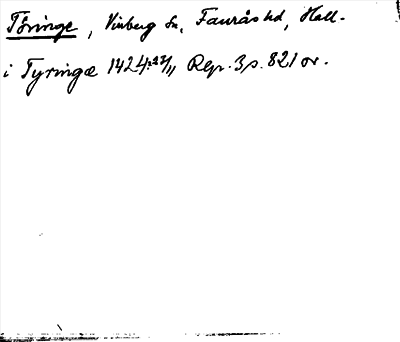 Töringe, Vinberg sn, Faurås hd, Hall.
i Tyringæ 1424 27/11 Rep. 3 s. 821 or.